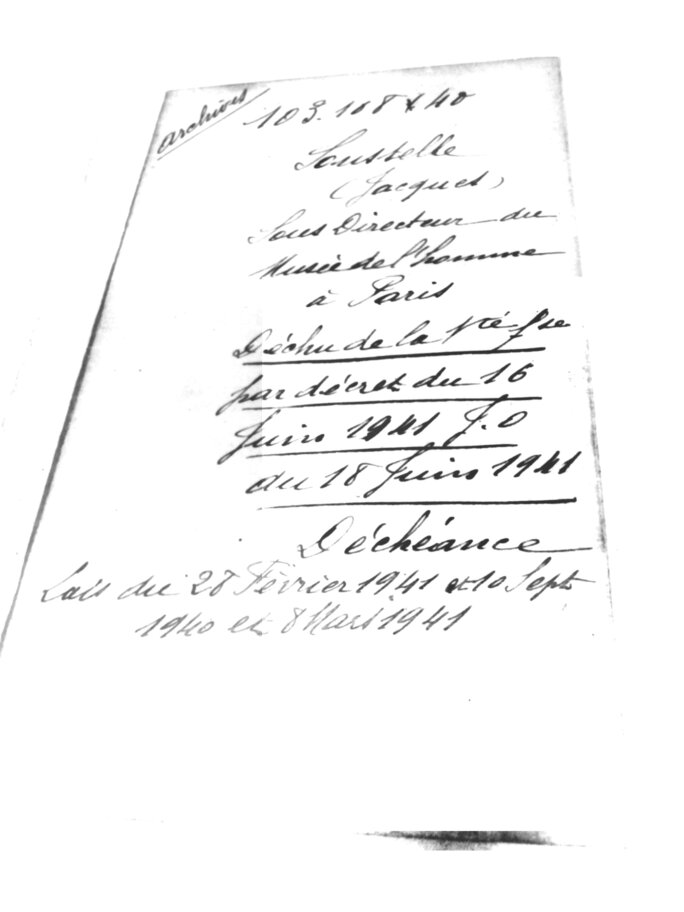 archives
103.108 X 40
Soustelle
(Jacques)
Sous Directeur du
Musée de l'homme
à Paris
Déchu de la Nté fse
par décret du 16
Juin 1941 J.O
du 18 Juin 1941
Déchéance
Lois du 28 Février 1941 et 10 Sept
1940 et 8 Mars 1941